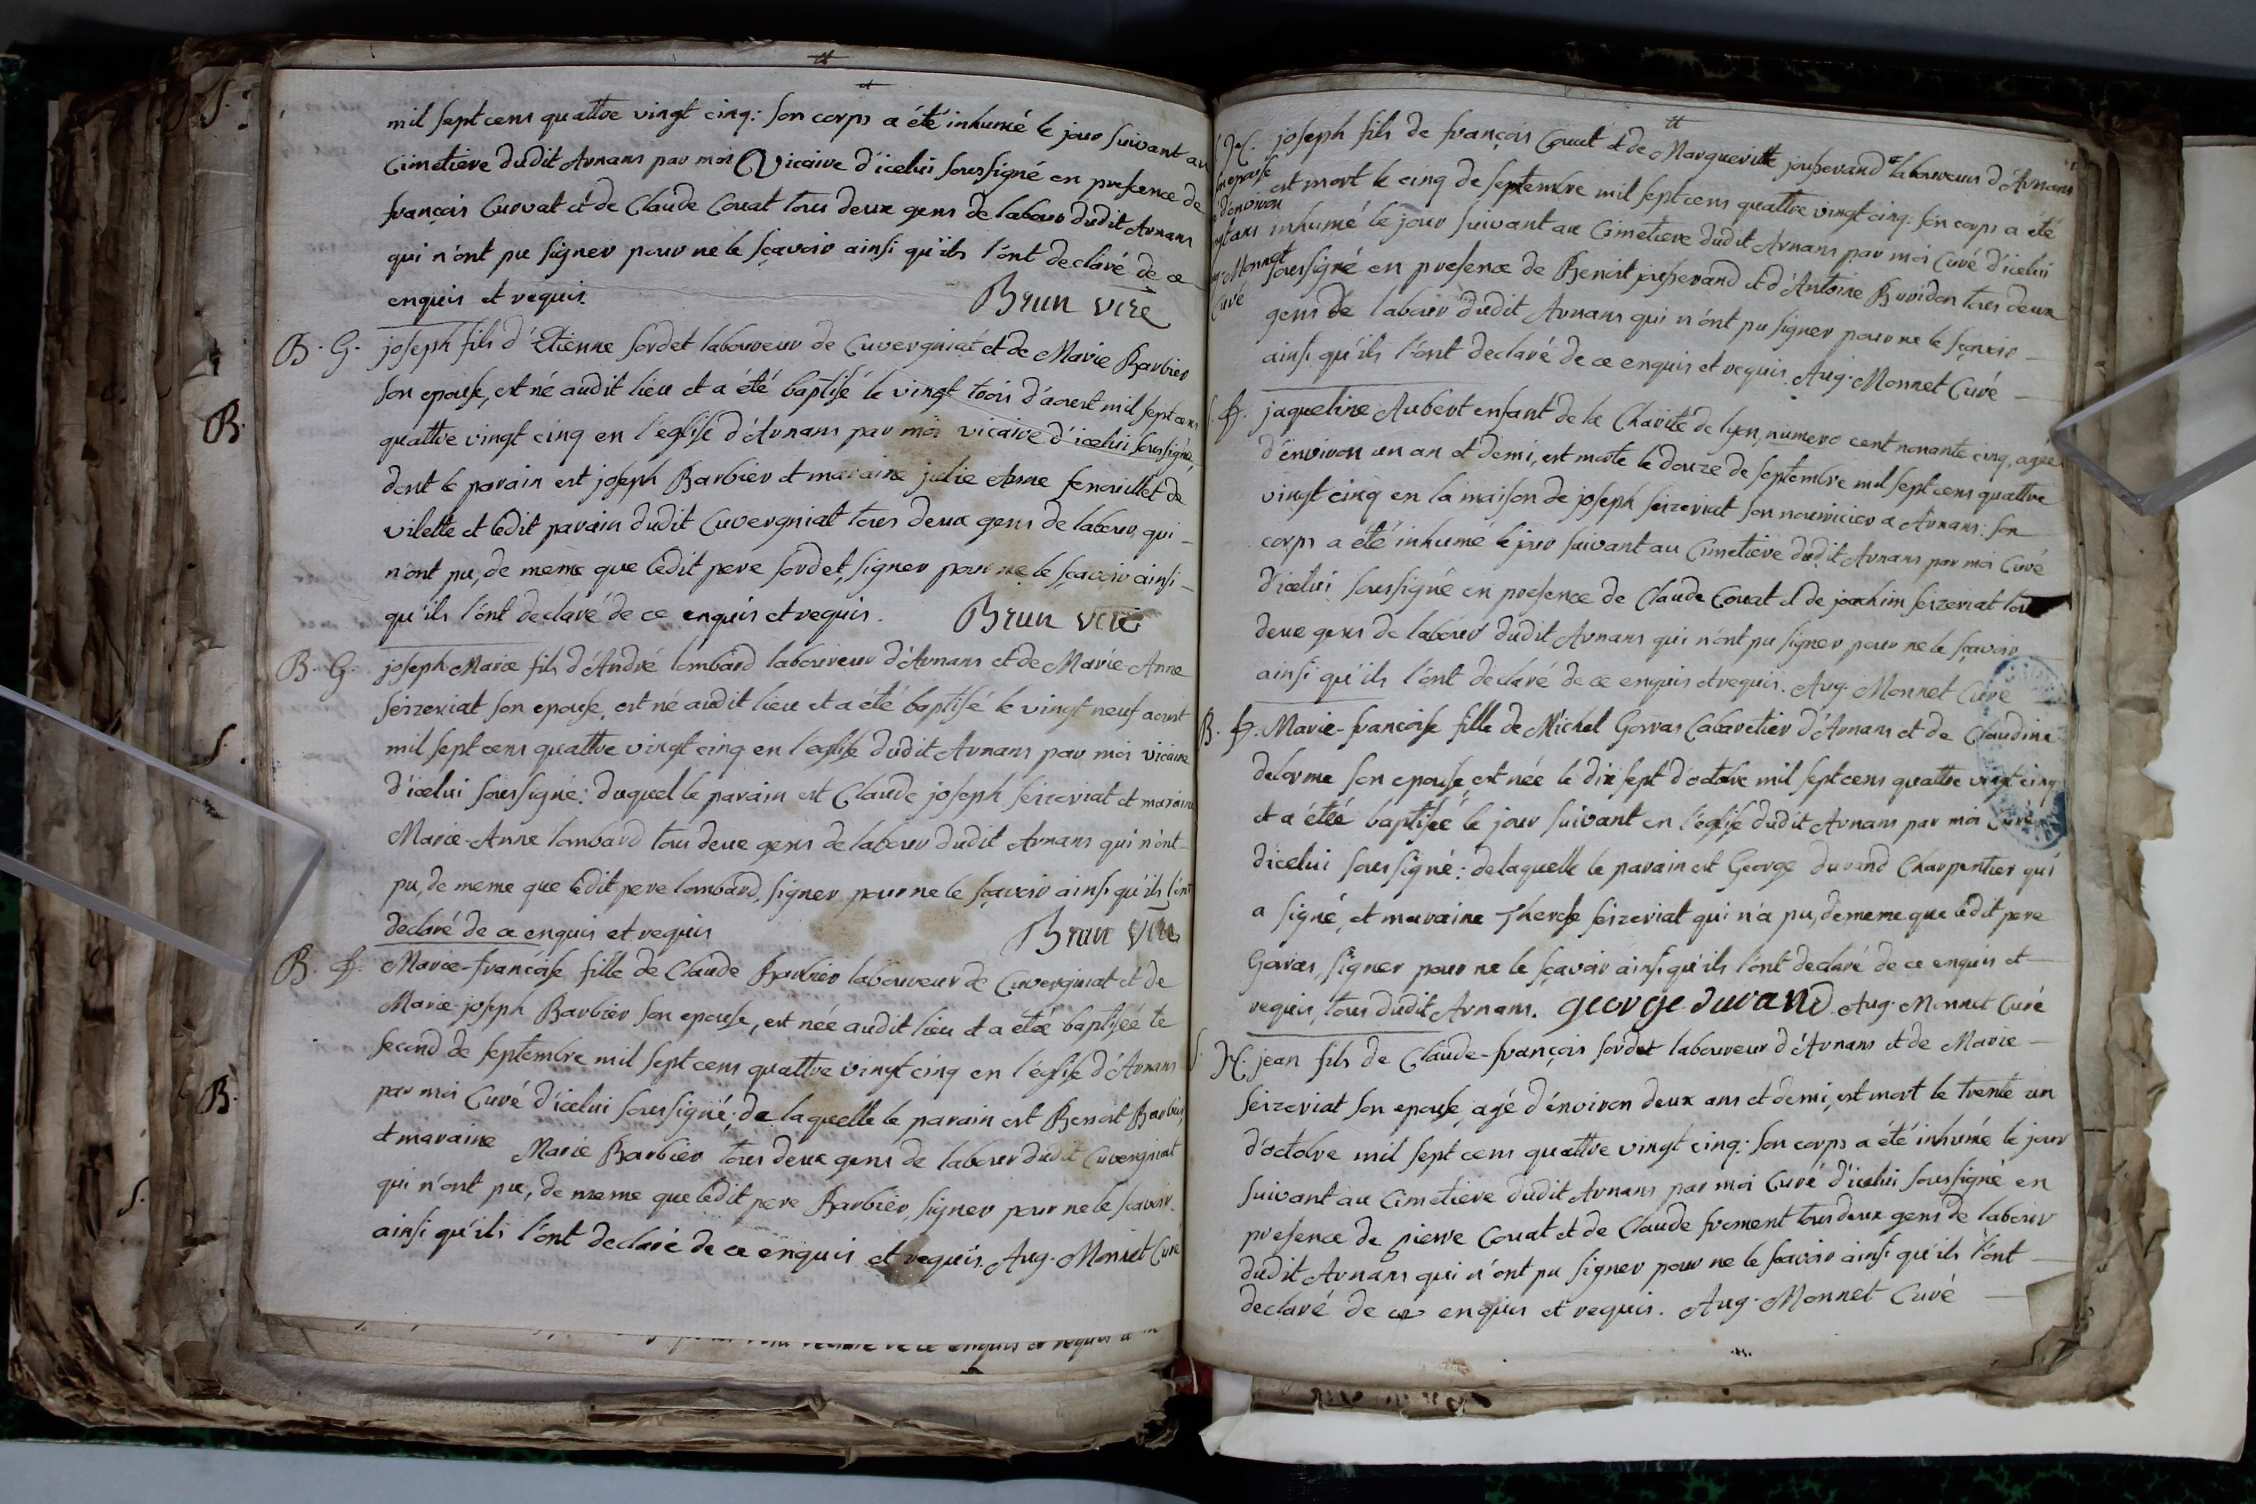 mil sept cens quattre vingt cinq: son corps a été inhumé le jour suivant au
Cimetiere dudit Arnans par moi Vicaire d'icelui soussigné en presence de
françois Curvat et de Claude Couat tous deux gens de labour dudit Arnans
qui n'ont pu signer pour ne le sçavoir ainsi qu'ils l'ont declaré de ce
enquis et requis. Brun vire
B. G. joseph fils d'Etienne sordet laboureur de Cuvergniat et de Marie Barbier
son epouse, est né audit lieu et a été baptisé le vingt trois d'aoust mil sept cens
quattre vingt cinq en l'eglise d'Arnans par moi vicaire d'icelui soussigné,
dont le parain est joseph Barbier et maraine julie Anne fenouillet de
vilette et ledit parain dudit Cuvergniat tous deux gens de labour, qui
n'ont pu, de meme que ledit pere sordet, signer pour ne le sçavoir ainsi
qu'ils l'ont declaré de ce enquis et requis. Brun vire
B. G. joseph-Marie fils d'André lombard laboureur d'Arnans et de Marie-Anne
seizeriat son epouse, est né audit lieu et a été baptisé le vingt neuf aoust
mil sept cens quattre vingt cinq en l'eglise dudit Arnans par moi vicaire
d'icelui soussigné: duquel le parain est Claude joseph seizeriat et maraine
Marie-Anne lombard tous deux gens de labour dudit Arnans qui n'ont
pu, de meme que ledit pere lombard, signer pour ne le sçavoir ainsi qu'ils l'ont
declaré de ce enquis et requis Brun vire
B. f. Marie-françoise fille de Claude Barbier laboureur de Cuvergniat et de
Marie-joseph Barbier son epouse, est née audit lieu et a étée baptisée le
second de septembre mil sept cens quattre vingt cinq en l'église d'Arnans
par moi Curé d'icelui soussigné; de laquelle le parain est Benoit Barbier,
et maraine Marie Barbier tous deux gens de labour dudit Cuvergniat
qui n'ont pu, de meme que ledit pere Barbier, signer pour ne le sçavoir
ainsi qu'ils l'ont declaré de ce enquis et requis. Aug. Monnet Curé
joseph fils de françois Couat et de Margueritte josserand laboureurs d'Arnans
est mort le cinq de septembre mil sept cens quattre vingt cinq: son corps a été
inhumé le jour suivant au Cimetiere dudit Arnans par moi Curé d'icelui
soussigné en presence de Benoit josserand et d'Antoine Buridon tous deux
gens de labour dudit Arnans qui n'ont pu signer pour ne le sçavoir
ainsi qu'ils l'ont declaré de ce enquis et requis. Aug. Monnet Curé
d'environ
Monnet
Curé
S. f. jaqueline Aubert enfant de la Charité de lyon, numero cent nonante cinq, agée
d'environ un an et demi, est morte le douze de septembre mil sept cens quattre
vingt cinq en la maison de joseph seizeriat son nourricier a Arnans: son
corps a été inhumé le jour suivant au Cimetiere dudit Arnans par moi Curé
d'icelui soussigné en presence de Claude Couat et de joachim seizeriat tous
deux gens de labour dudit Arnans qui n'ont pu signer pour ne le sçavoir
ainsi qu'ils l'ont declaré de ce enquis et requis. Aug. Monnet Curé
B. f. Marie-françoise fille de Michel Gorras Cabaretier d'Arnans et de Claudine
delorme son epouse est née le dix sept d'octobre mil sept cens quattre vingt cinq
et a étée baptisée le jour suivant en l'eglise dudit Arnans par moi Curé
d'icelui soussigné: de laquelle le parain est George durand Charpentier qui
a signé, et maraine Therese seizeriat qui n'a pu, de meme que ledit pere
Gorras, signer pour ne le sçavoir ainsi qu'ils l'ont declaré de ce enquis et
requis, tous dudit Arnans. george durand Aug. Monnet Curé
jean fils de Claude-françois sordet laboureur d'Arnans et de Marie
seizeriat son epouse, agé d'environ deux ans et demi, est mort le trente un
d'octobre mil sept cens quattre vingt cinq: son corps a été inhumé le jour
suivant au Cimetiere dudit Arnans par moi Curé d'icelui soussigné en
presence de pierre Couat et de Claude froment tous deux gens de labour
dudit Arnans qui n'ont pu signer pour ne le sçavoir ainsi qu'ils l'ont
declaré de ce enquis et requis. Aug. Monnet Curé